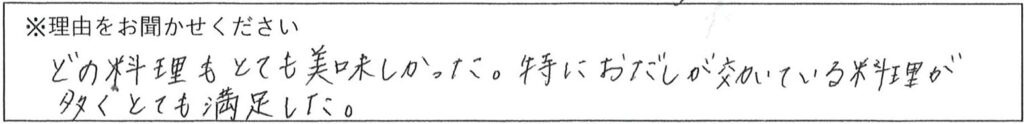 ※理由をお聞かせください
どの料理もとても美味しかった。特におだしが効いている料理が
多くとても満足した。